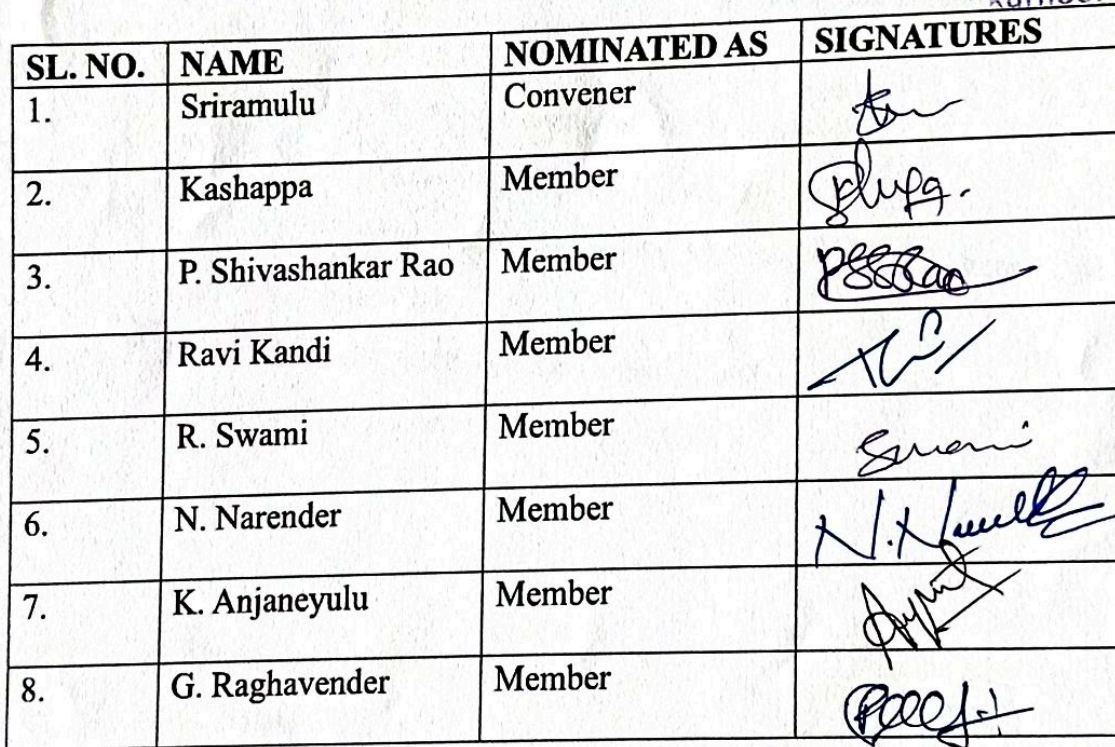 SL. NO. NAME NOMINATED AS SIGNATURES
1. Sriramulu Convener
2. Kashappa Member
3. P. Shivashankar Rao Member
4. Ravi Kandi Member
5. R. Swami Member Swami
6. N. Narender Member
7. K. Anjaneyulu Member
8. G. Raghavender Member